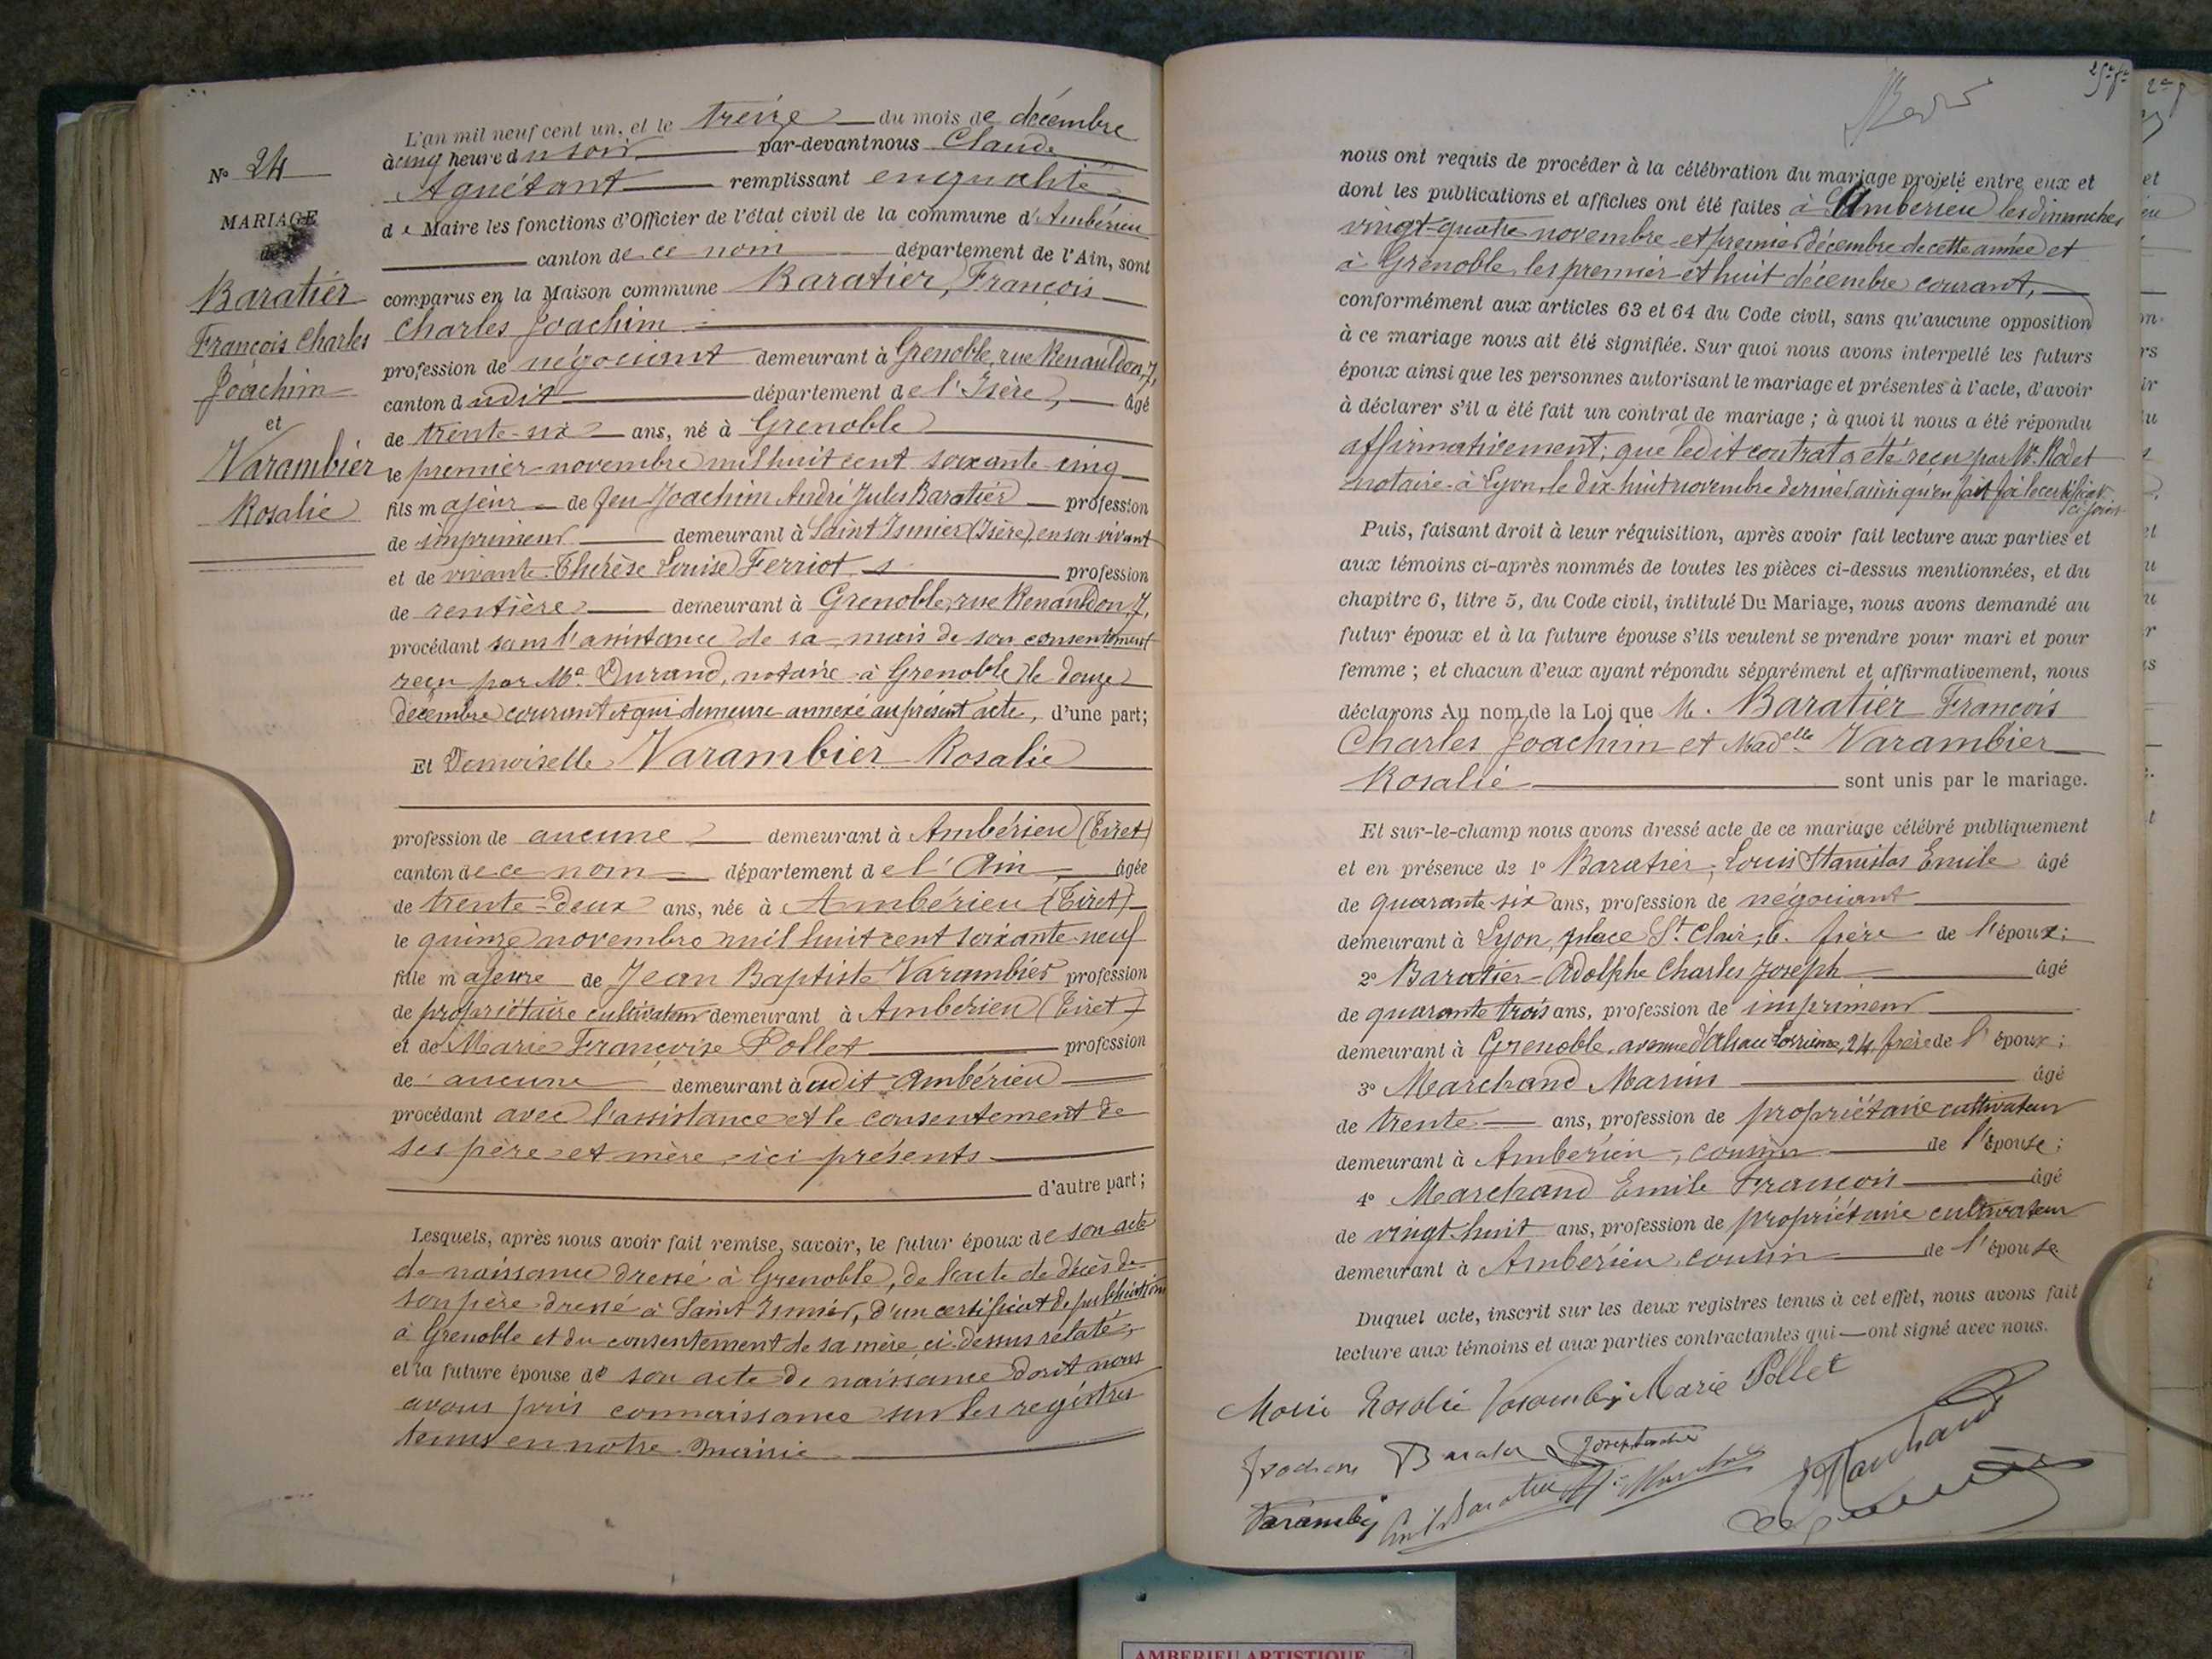 N° 24
MARIAGE
de
Baratier
François Charles
Joachim
et
Varambier
Rosalie
L'an mil neuf cent un, et le treize du mois de décembre
à cinq heure du soir par-devant nous Claude
Aguétant remplissant en qualité
de Maire les fonctions d'Officier de l'état civil de la commune d'Ambérieu
canton de ce nom département de l'Ain, sont
comparus en la Maison commune Baratier, François
Charles Joachim
profession de négociant demeurant à Grenoble, rue Renauldon, 7,
canton dudit département de l'Isère, âgé
de trente-six ans, né à Grenoble
le premier novembre mil huit cent soixante-cinq
fils majeur de feu Joachim André Jules Baratier profession
de imprimeur demeurant à Saint Ismier (Isère), en son vivant
et de vivante Thérèse Louise Ferriot profession
de rentière demeurant à Grenoble, rue Renauldon 7,
procédant sans l'assistance de sa mais de son consentement
reçu par Me Durand, notaire à Grenoble le douze
décembre courant et qui demeure annexé au présent acte, d'une part;
Et Demoiselle Varambier Rosalie
profession de aucune demeurant à Ambérieu (Tiret)
canton de ce nom département de l'Ain, âgée
de trente-deux ans, née à Ambérieu (Tiret)
le quinze novembre mil huit cent soixante-neuf
fille majeure de Jean Baptiste Varambier profession
de propriétaire cultivateur demeurant à Ambérieu (Tiret)
et de Marie Françoise Pollet profession
de aucune demeurant à udit Ambérieu
procédant avec l'assistance et le consentement de
ses père et mère ici présents
d'autre part;
Lesquels, après nous avoir fait remise, savoir, le futur époux de son acte
de naissance dressé à Grenoble, de l'acte de décès de
son père dressé à Saint Ismier, d'un certificat de publication
à Grenoble et du consentement de sa mère ci-dessus relaté,
et la future épouse de son acte de naissance dont nous
avons pris connaissance sur les registres
tenus en notre mairie
nous ont requis de procéder à la célébration du mariage projeté entre eux et
dont les publications et affiches ont été faites à Ambérieu les dimanches
vingt-quatre novembre et premier décembre de cette année et
à Grenoble les premier et huit décembre courant,
conformément aux articles 63 et 64 du Code civil, sans qu'aucune opposition
à ce mariage nous ait été signifiée. Sur quoi nous avons interpellé les futurs
époux ainsi que les personnes autorisant le mariage et présentes à l'acte, d'avoir
à déclarer s'il a été fait un contrat de mariage; à quoi il nous a été répondu
affirmativement; que ledit contrat a été reçu par Me Rodet
notaire à Lyon, le dix-huit novembre dernier ainsi qu'en fait foi le certificat
ci-joint
Puis, faisant droit à leur réquisition, après avoir fait lecture aux parties et
aux témoins ci-après nommés de toutes les pièces ci-dessus mentionnées, et du
chapitre 6, titre 5, du Code civil, intitulé Du Mariage, nous avons demandé au
futur époux et à la future épouse s'ils veulent se prendre pour mari et pour
femme; et chacun d'eux ayant répondu séparément et affirmativement, nous
déclarons Au nom de la Loi que M. Baratier François
Charles Joachim et Madelle Varambier
Rosalie sont unis par le mariage.
Et sur-le-champ nous avons dressé acte de ce mariage célébré publiquement
et en présence de 1° Baratier, Louis Stanislas Emile âgé
de quarante-six ans, profession de négociant
demeurant à Lyon, place St Clair, 6. frère de l'époux;
2° Baratier Adolphe Charles Joseph âgé
de quarante trois ans, profession de imprimeur
demeurant à Grenoble, avenue d'Alsace Lorraine, 24, frère de l'époux;
3° Marchand Marius âgé
de trente ans, profession de propriétaire cultivateur
demeurant à Ambérieu, cousin de l'épouse;
4° Marchand Emile François âgé
de vingt-huit ans, profession de propriétaire cultivateur
demeurant à Ambérieu, cousin de l'épouse
Duquel acte, inscrit sur les deux registres tenus à cet effet, nous avons fait
lecture aux témoins et aux parties contractantes qui ont signé avec nous.
Marie Rosalie Marie Pollet
Marchand
AMBERIEU ARTISTIQUE